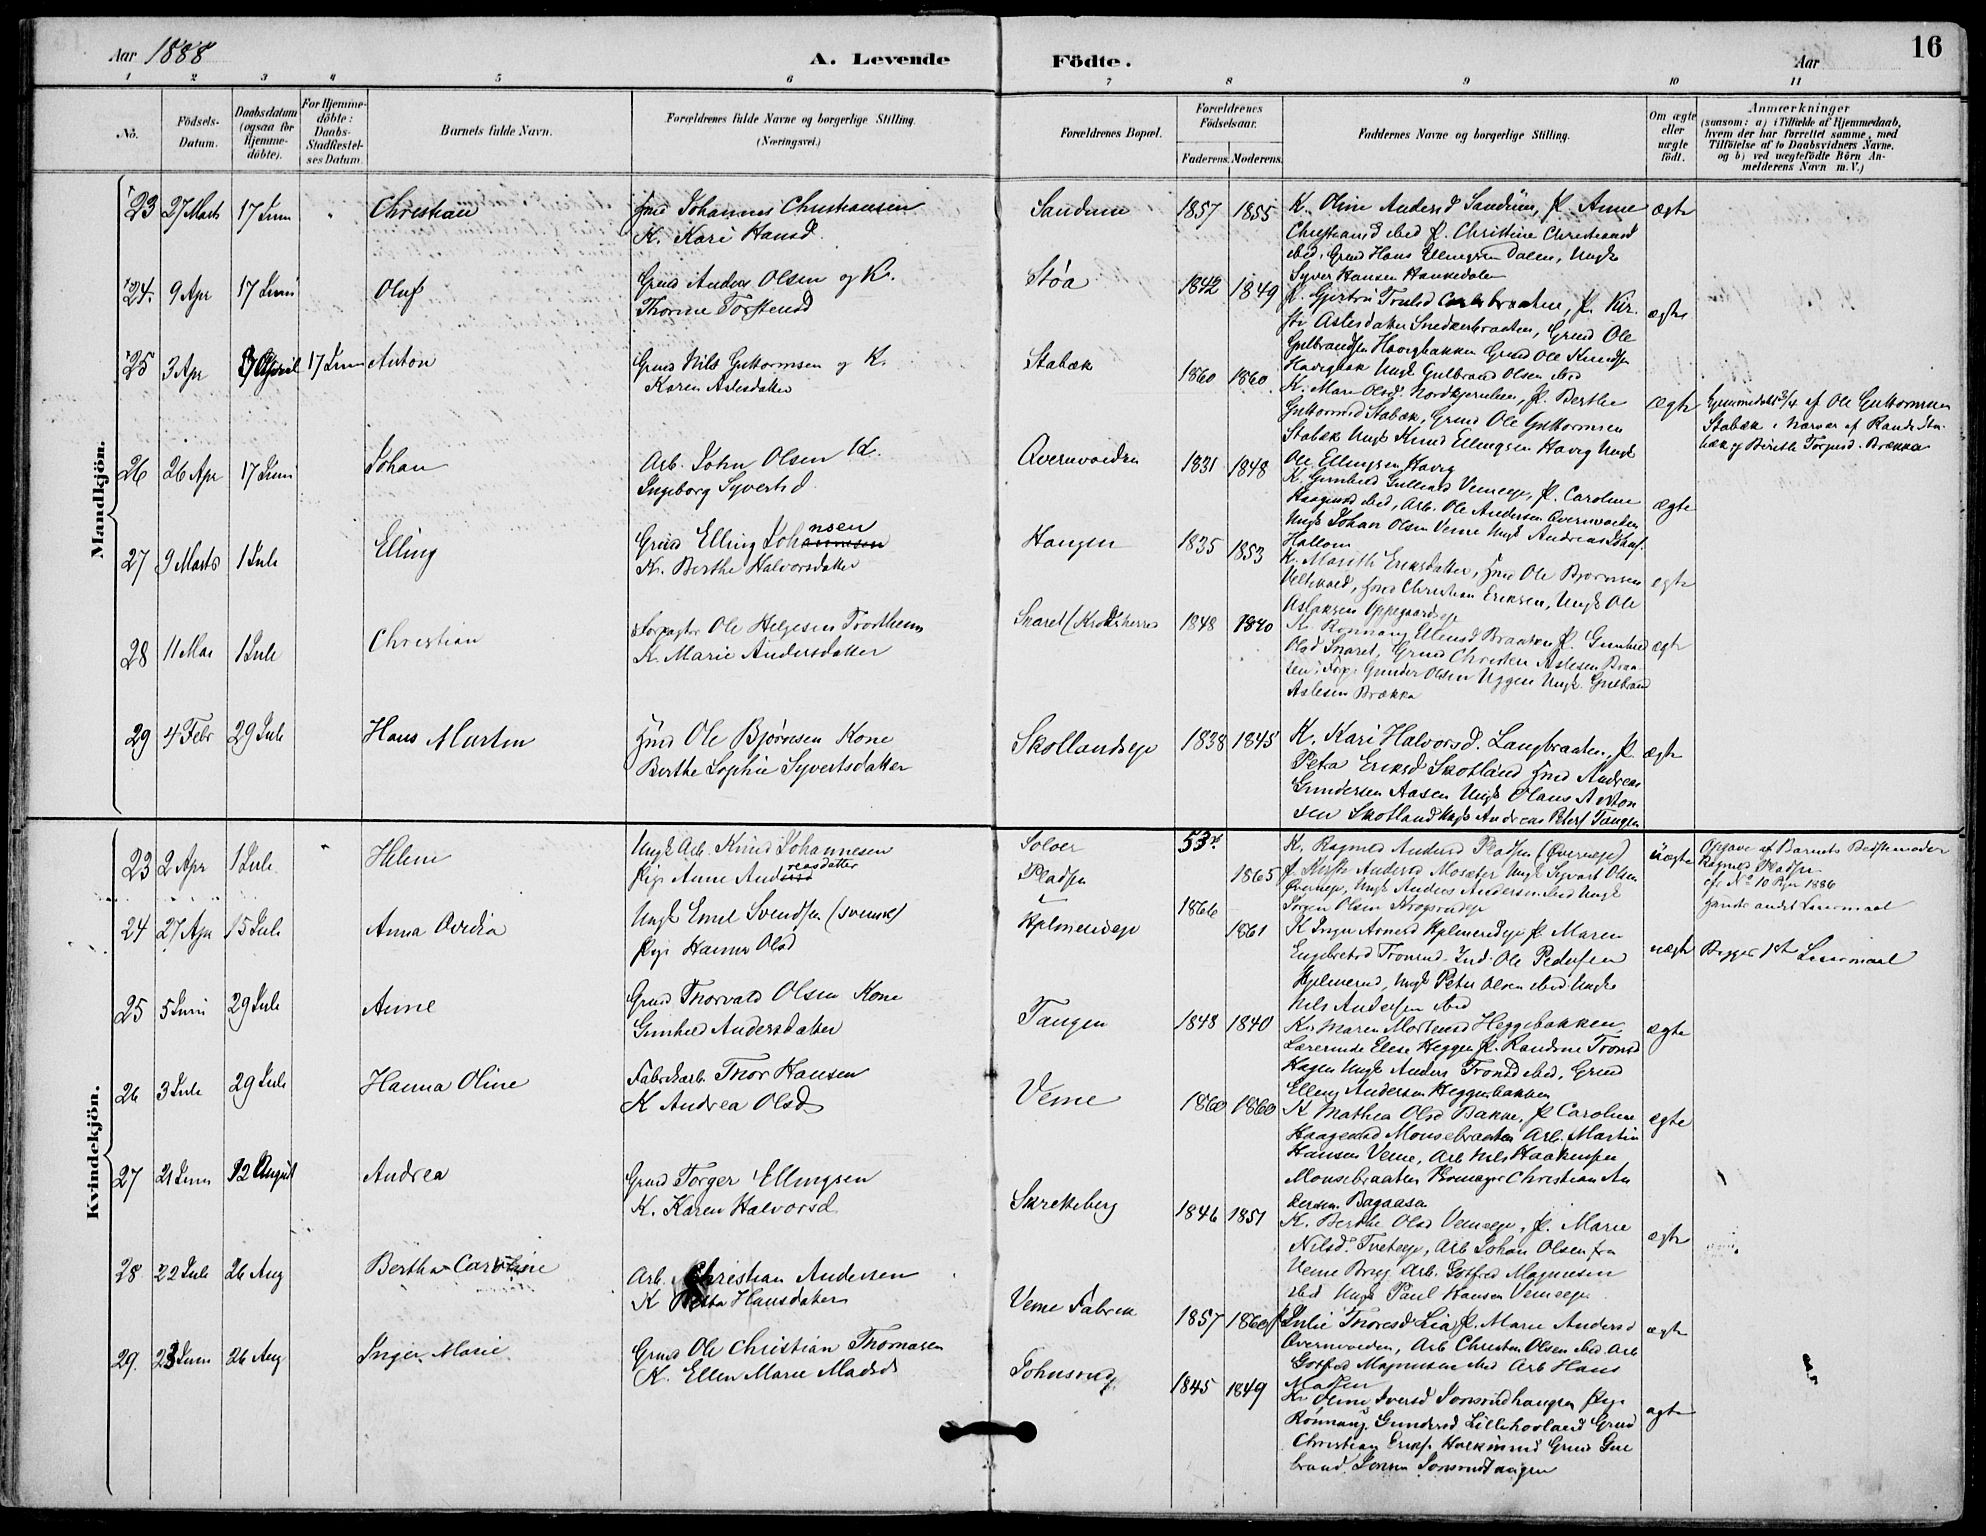 Aar 1888
A. Levende
Födte.
Aar
16
1 2 3 4 5 6 7 8 9 10 11
No.
Födsels-
Datum.
Daabsdatum
(ogsaa for
Hjemme-
döbte).
For Hjemme-
döbte:
Daabs-
Stadfæstel-
ses Datum.
Barnets fulde Navn.
Forældrenes fulde Navne og borgerlige Stilling.
(Næringsvei.)
Forældrenes Bopæl.
Forældrenes
Födselsaar.
Faderens. Moderens.
Faddernes Navne og borgerlige Stilling.
Om ægte
eller
uægte
födt.
Anmærkninger
(saasom: a) i Tilfælde af Hjemmedaab,
hvem der har forrettet samme, med
Tilföielse af to Daabsvidners Navne,
og b) ved uægtefödte Börn An-
melderens Navn m. V.)
Mandkjön.
23 27 Marts 17 Juni " Christian
Johannes Christiansen
K. Kari Hansd.
Sandum 1857 1855
K. Oline Andersd Sandum, P. Anne
Christiansd ibd P. Christine Christiansd
ibd, Grd Hans Dalen, Ungk
Syver Hansen Hankedalen
ægte
24. 9 Apr 17 Juni Oluf
Grd Anders Olsen og K.
Thorine Torstensd
Støa 1842 1849
P. Gjertru Trulsd P. Kir-
sti Aslesdatter Snedkerbraaten, Grd Ole
Gulbrandsen Haavigbakken Grd Ole Knudsen
Ungk Gulbrand Olsen ibd
ægte
25 3 Apr April 17 Juni Anton
Grd Nils Guttormsen og K.
Karen Aslesdatter
Stabæk 1860 1860
K. Mari Olsd. P. Berthe
Guttormsd Stabæk, Grd Ole Guttormsen
Stabæk Ungk Knud Ellingsen Havig Ungk
Ole Ellingsen Havig
ægte
Hjemmedøbt 3/4 af Ole Guttormsen
Stabæk i Nærvær af Rande Sta-
bæk og Berithe Torgersd. Brækka
26 26 Apr 17 Juni Johan
Arb. John Olsen K.
Ingeborg Syvertsd.
1831 1848
K. Gunhild P. Caroline
ibd, Arb. Ole Andersen
Ungk Johan Olsen Veme Ungk Andreas
ægte
27 9 Marts 1 Juli Elling
Grd Elling Johannsen
K. Berthe Halvorsdatter
Haugen 1835 1853
K. Marith Eriksdatter, Ole Bjørnsen
Christian Eriksen, Ungk Ole
Aslaksen Oppegaardseje
ægte
28 11 Mai 1 Juli Christian
Ole Helgesen
K. Marie Andersdatter
1848 1840
K. Rønnaug Ellensd Braaten P. Gunhild
Olsd Grd Christen Aslesen Braa-
ten, Gunder Olsen Uggen Ungk. Gulbrand
Aslesen Brækka
ægte
29 4 Febr 29 Juli Hans Martin
Ole Bjørnsen Kone
Berthe Sophie Syvertsdatter
Skotlandseje 1838 1845
K. Kari Halvorsd. Langbraaten, P.
Petra Eriksd Skotland Andreas
Gundersen Aasen Ungk Olaus Anton
sen Skotland Ungk Andreas Peters Tangen
ægte
Kvindekjön.
23 2 Apr 1 Juli Helene
Ungk Arb. Knud Johannesen
Pige Anne Andreasdatter
Soløer
Pladsen
53. 1865
K. Ragnild Andersd Pladsen
P. Kirsti Andersd Moseter Ungk Syvert Olsen
Ungk Anders Andersen ibd Ungk
Søren Olsen
uægte
Opgave af Barnets Bedstemoder
Ragnild Pladsen
cfr No 10 1886
andet Leiermaal
24 27 Apr 15 Juli Anna Ovidia
Ungk Emil Svendsen (svensk)
Pige Hanna Olsd
Hjelmerudeje 1866 1861
K Inger Hjelmerudeje P. Maren
Engebretsd Ind. Ole Pedersen
Hjelmerud, Ungk Peter Olsen ibd Ungk
Nils Andersen ibd
uægte Begges 1ste Leiermaal
25 5 Juni 29 Juli Anne
Grd Thorvald Olsen Kone
Gunhild Andersdatter
Tangen 1848 1840
K. Maren Mortensd Heggebakken,
Lærerinde Elise Heggen P. Randine Tronsd
Hagen Ungk Anders Tronsd ibd, Grd
Elling Andersen Heggenbakken
ægte
26 3 Juli 29 Juli Hanna Oline
Fabrikarb. Thor Hansen
K Andrea Olsd
Veme 1860 1860
K Mathea Olsd Bakke, P. Caroline
Haagensd Mousebraaten Arb. Martin
Hansen Veme, Arb Nils Haakensen
Mousebraaten Christian An
dersen Bagaasa
ægte
27 21 Juni 12 August Andrea
Grd Torger Ellingsen
K. Karen Halvorsd
Skretteberg 1846 1851
K. Berthe Olsd Vemeeje, P. Marie
Nilsd. Tveteje, Arb Johan Olsen fra
Veme Brug Arb. Gotfred Magnusen
ibd Ungk Paul Hansen Vemeeje.
ægte
28 22 Juli 26 Aug Bertha Caroline
Arb. Christian Andersen
K Hansdatter
Veme Fabrik 1857 1860
P Julie Thoresd Lia P. Marie Andersd
Arb Christen Olsen ibd Arb
Gotfred Magnusen ibd Arb Hans
Madsen
ægte
29. 23 Juni 26 Aug Inger Marie
Grd Ole Christian Thomasen
K. Ellen Marie Madsd
Johnsrud 1845 1849
K. Oline Iversd Jonsrudhaugen Pige
Rønnaug Gundersd Lillehovland Grd
Christian Eriks. Grd Gul
brand Jonsen Jonsrudhaugen
ægte